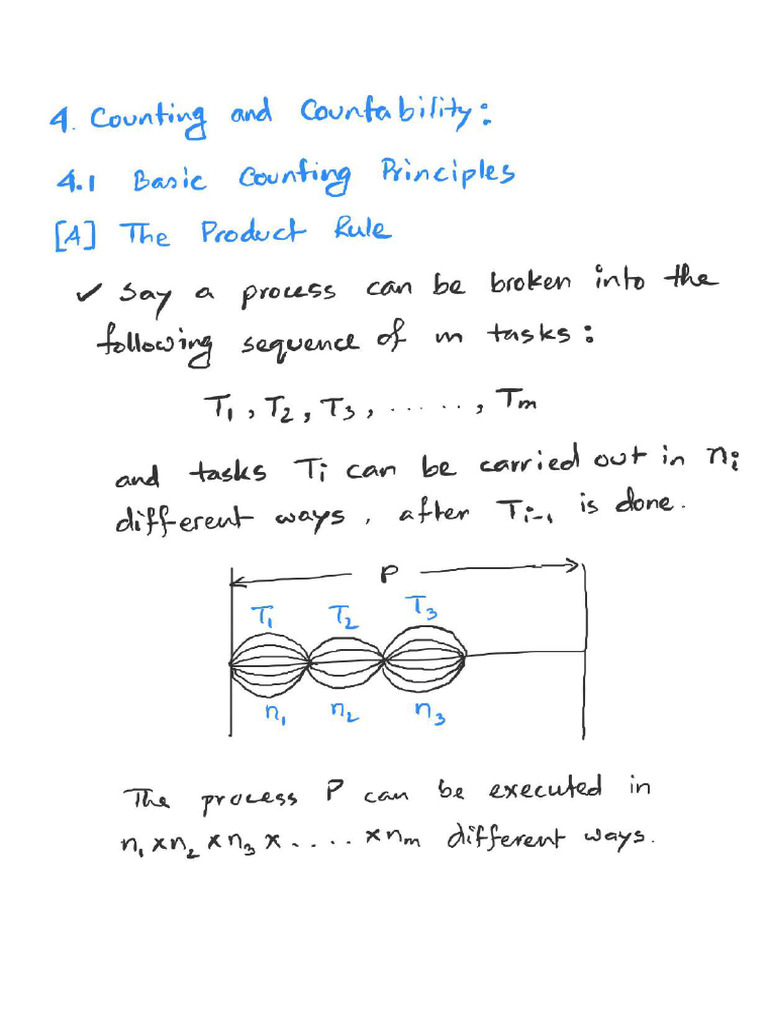 4. Counting and Countability:
4.1 Basic Counting Principles
[A] The Product Rule
✓ Say a process can be broken into the
following sequence of m tasks:
T₁, T₂, T₃, ......, Tₘ
and tasks Tᵢ can be carried out in nᵢ
different ways, after Tᵢ₋₁ is done.
P
T₁ T₂ T₃
n₁ n₂ n₃
The process P can be executed in
n₁ × n₂ × n₃ × .... × nₘ different ways.